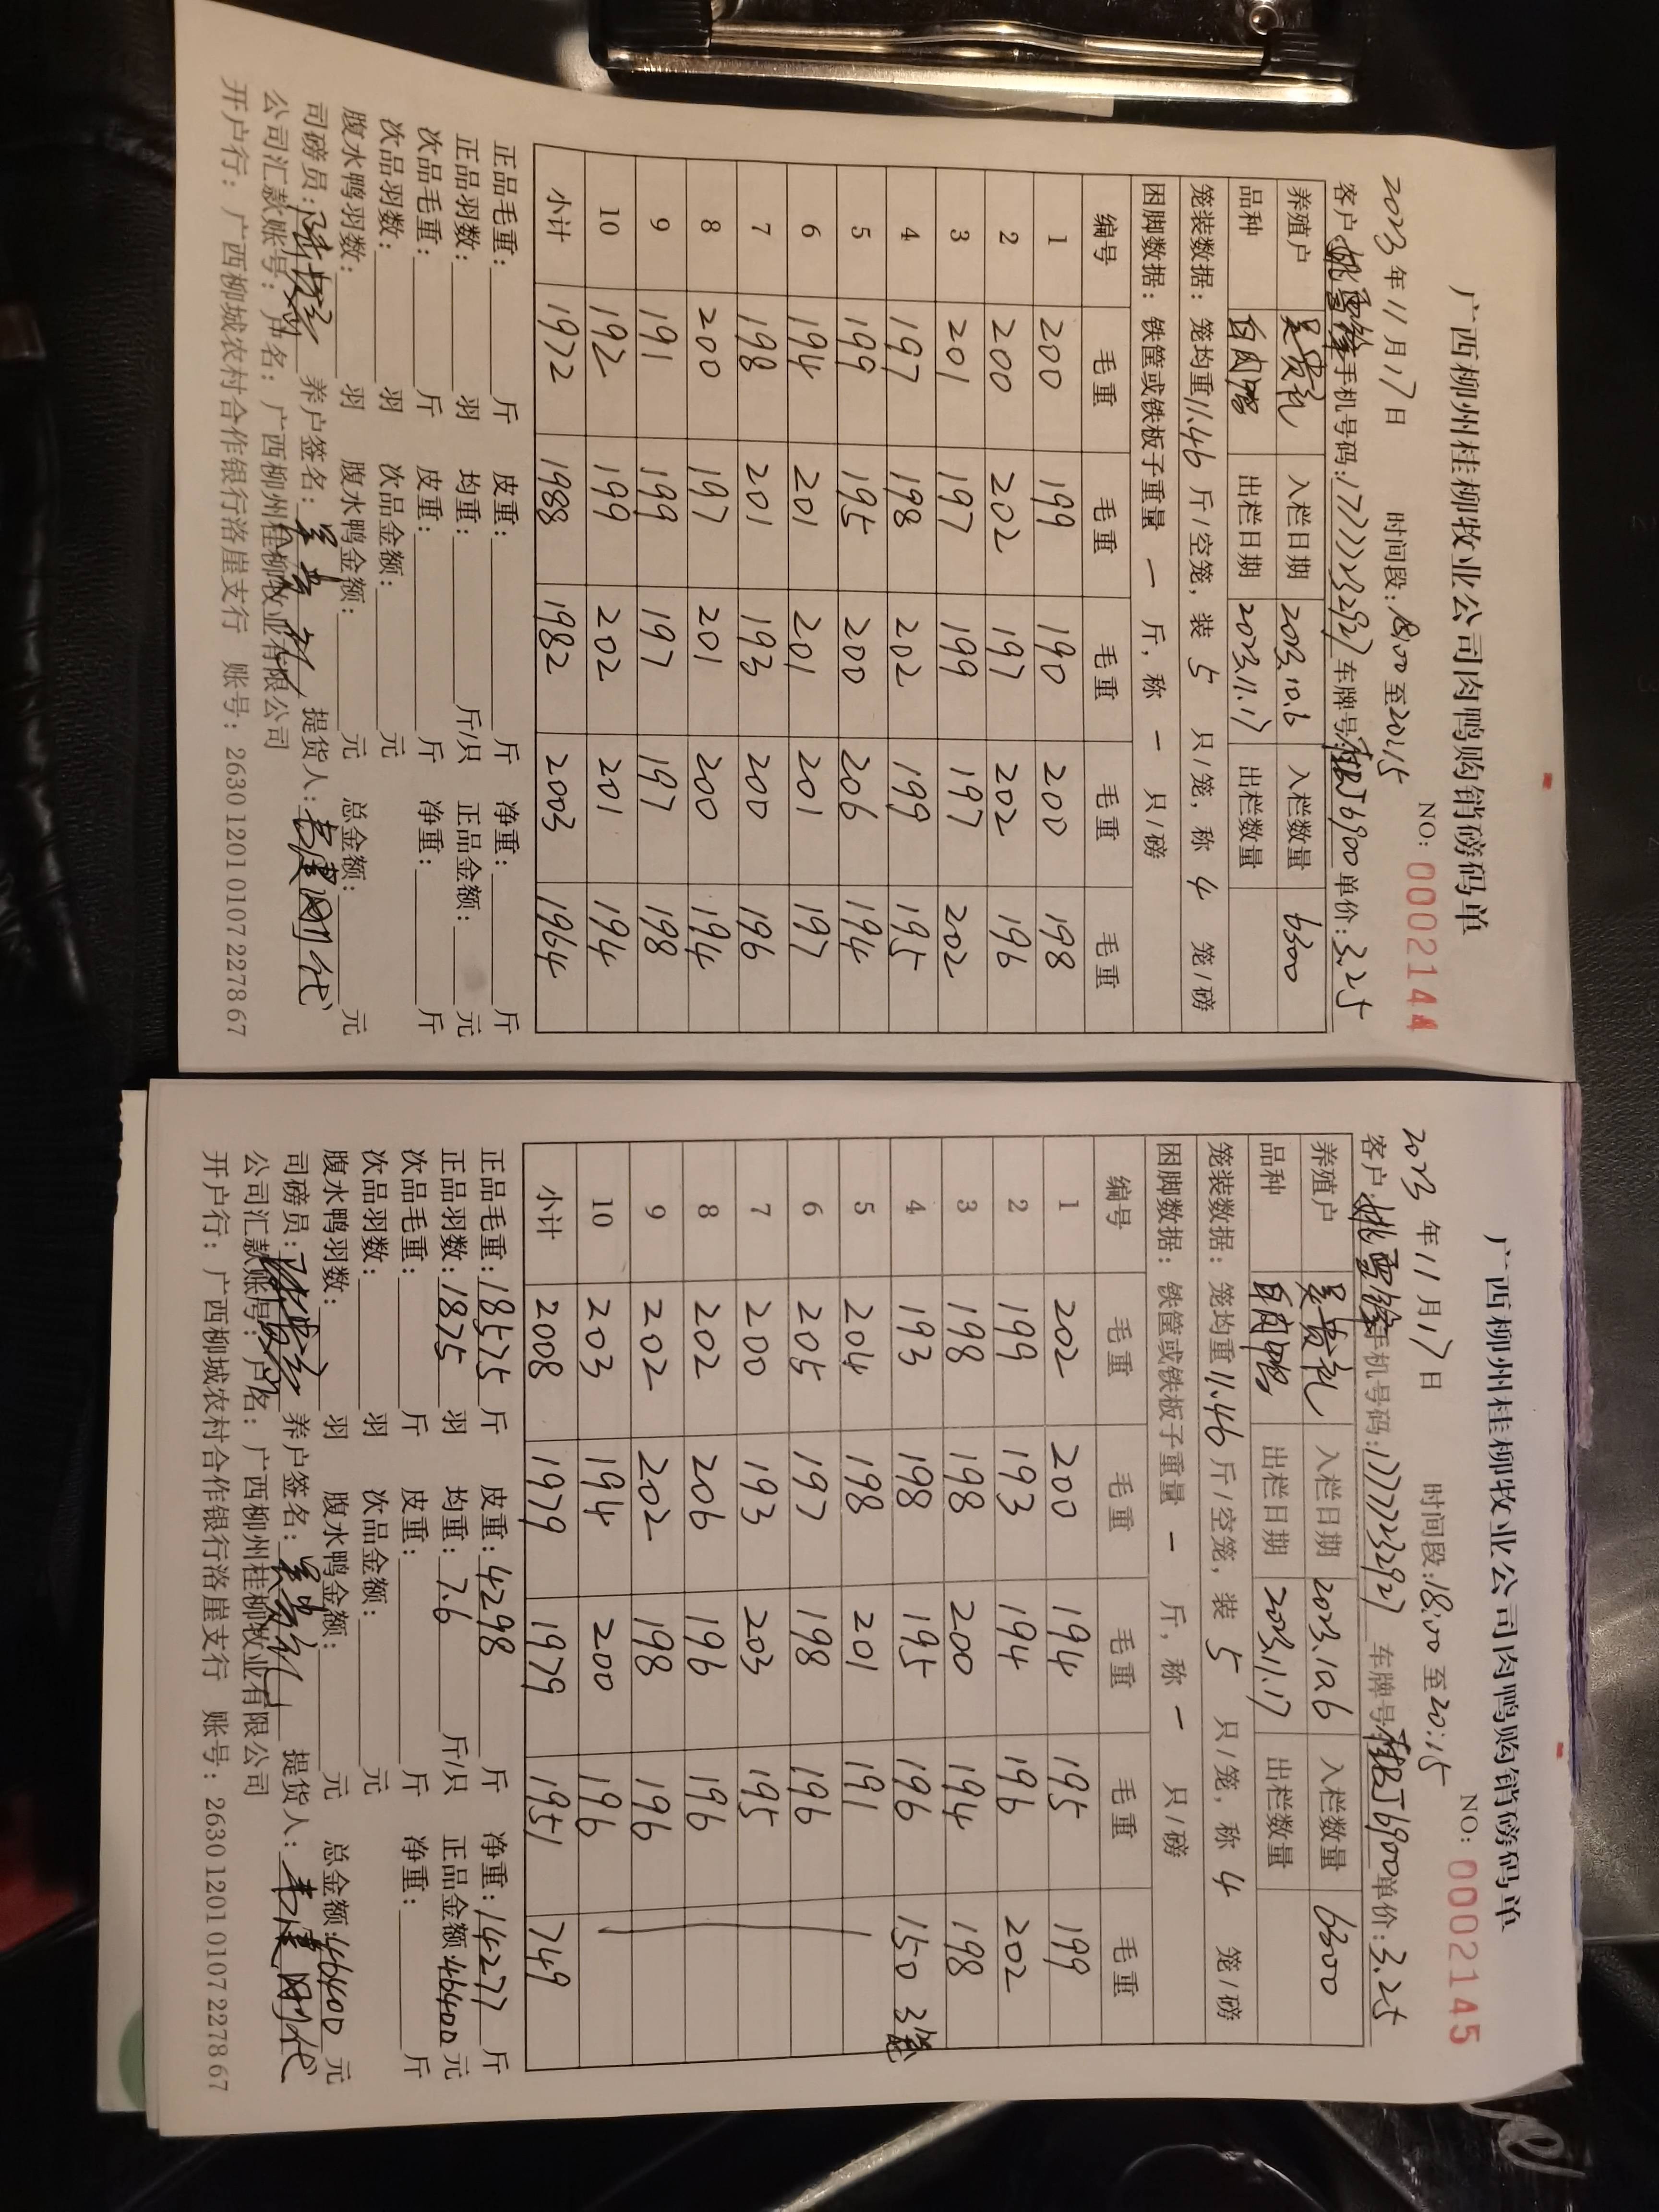 广西柳州桂柳牧业公司肉鸭购销磅码单
NO: 0002144
2023年11月17日 时间段:18:00至20:15
客户: 手机号码:17777232927 车牌号 J6900 单价:3.25
养殖户 吴贵礼 入栏日期 2023.10.6 入栏数量 6300
品种 白肉鸭 出栏日期 2023.11.17 出栏数量
笼装数据: 笼均重11.46斤/空笼, 装5只/笼, 称4笼/磅
困脚数据: 铁筐或铁板子重量 一 斤, 称 一 只/磅
编号 毛重 毛重 毛重 毛重 毛重
1 200 199 190 200 198
2 200 202 197 202 196
3 201 197 199 197 202
4 197 198 202 199 195
5 199 195 200 206 194
6 194 201 201 201 197
7 198 201 193 200 196
8 200 197 201 200 194
9 191 199 197 197 198
10 192 199 202 201 194
小计 1972 1988 1982 2003 1964
正品毛重: 斤 皮重: 斤 净重: 斤
正品羽数: 羽 均重: 斤/只 正品金额: 元
次品毛重: 斤 皮重: 斤 净重: 斤
次品羽数: 羽 次品金额: 元
腹水鸭羽数: 羽 腹水鸭金额: 元 总金额: 元
司磅员: 养户签名: 吴贵礼 提货人:
公司汇款账号: 户名: 广西柳州桂柳牧业有限公司
开户行: 广西柳城农村合作银行洛崖支行 账号: 2630 1201 0107 2278 67
广西柳州桂柳牧业公司肉鸭购销磅码单
NO: 0002145
2023年11月17日 时间段:18:00至20:15
客户: 手机号码:17777232927 车牌号 J6900 单价:3.25
养殖户 吴贵礼 入栏日期 2023.10.6 入栏数量 6300
品种 白肉鸭 出栏日期 2023.11.17 出栏数量
笼装数据: 笼均重11.46斤/空笼, 装5只/笼, 称4笼/磅
困脚数据: 铁筐或铁板子重量 一 斤, 称 一 只/磅
编号 毛重 毛重 毛重 毛重 毛重
1 202 200 194 195 199
2 199 193 194 196 202
3 198 198 200 194 198
4 193 198 195 196 150 3笼
5 204 198 201 191
6 205 197 198 196
7 200 193 203 195
8 202 206 196 196
9 202 202 198 196
10 203 194 200 196
小计 2008 1979 1979 1951 749
正品毛重:18575斤 皮重:4298斤 净重:14277斤
正品羽数:1875羽 均重:7.6斤/只 正品金额:46400元
次品毛重: 斤 皮重: 斤 净重: 斤
次品羽数: 羽 次品金额: 元
腹水鸭羽数: 羽 腹水鸭金额: 元 总金额:46400元
司磅员: 养户签名: 吴贵礼 提货人:
公司汇款账号: 户名: 广西柳州桂柳牧业有限公司
开户行: 广西柳城农村合作银行洛崖支行 账号: 2630 1201 0107 2278 67